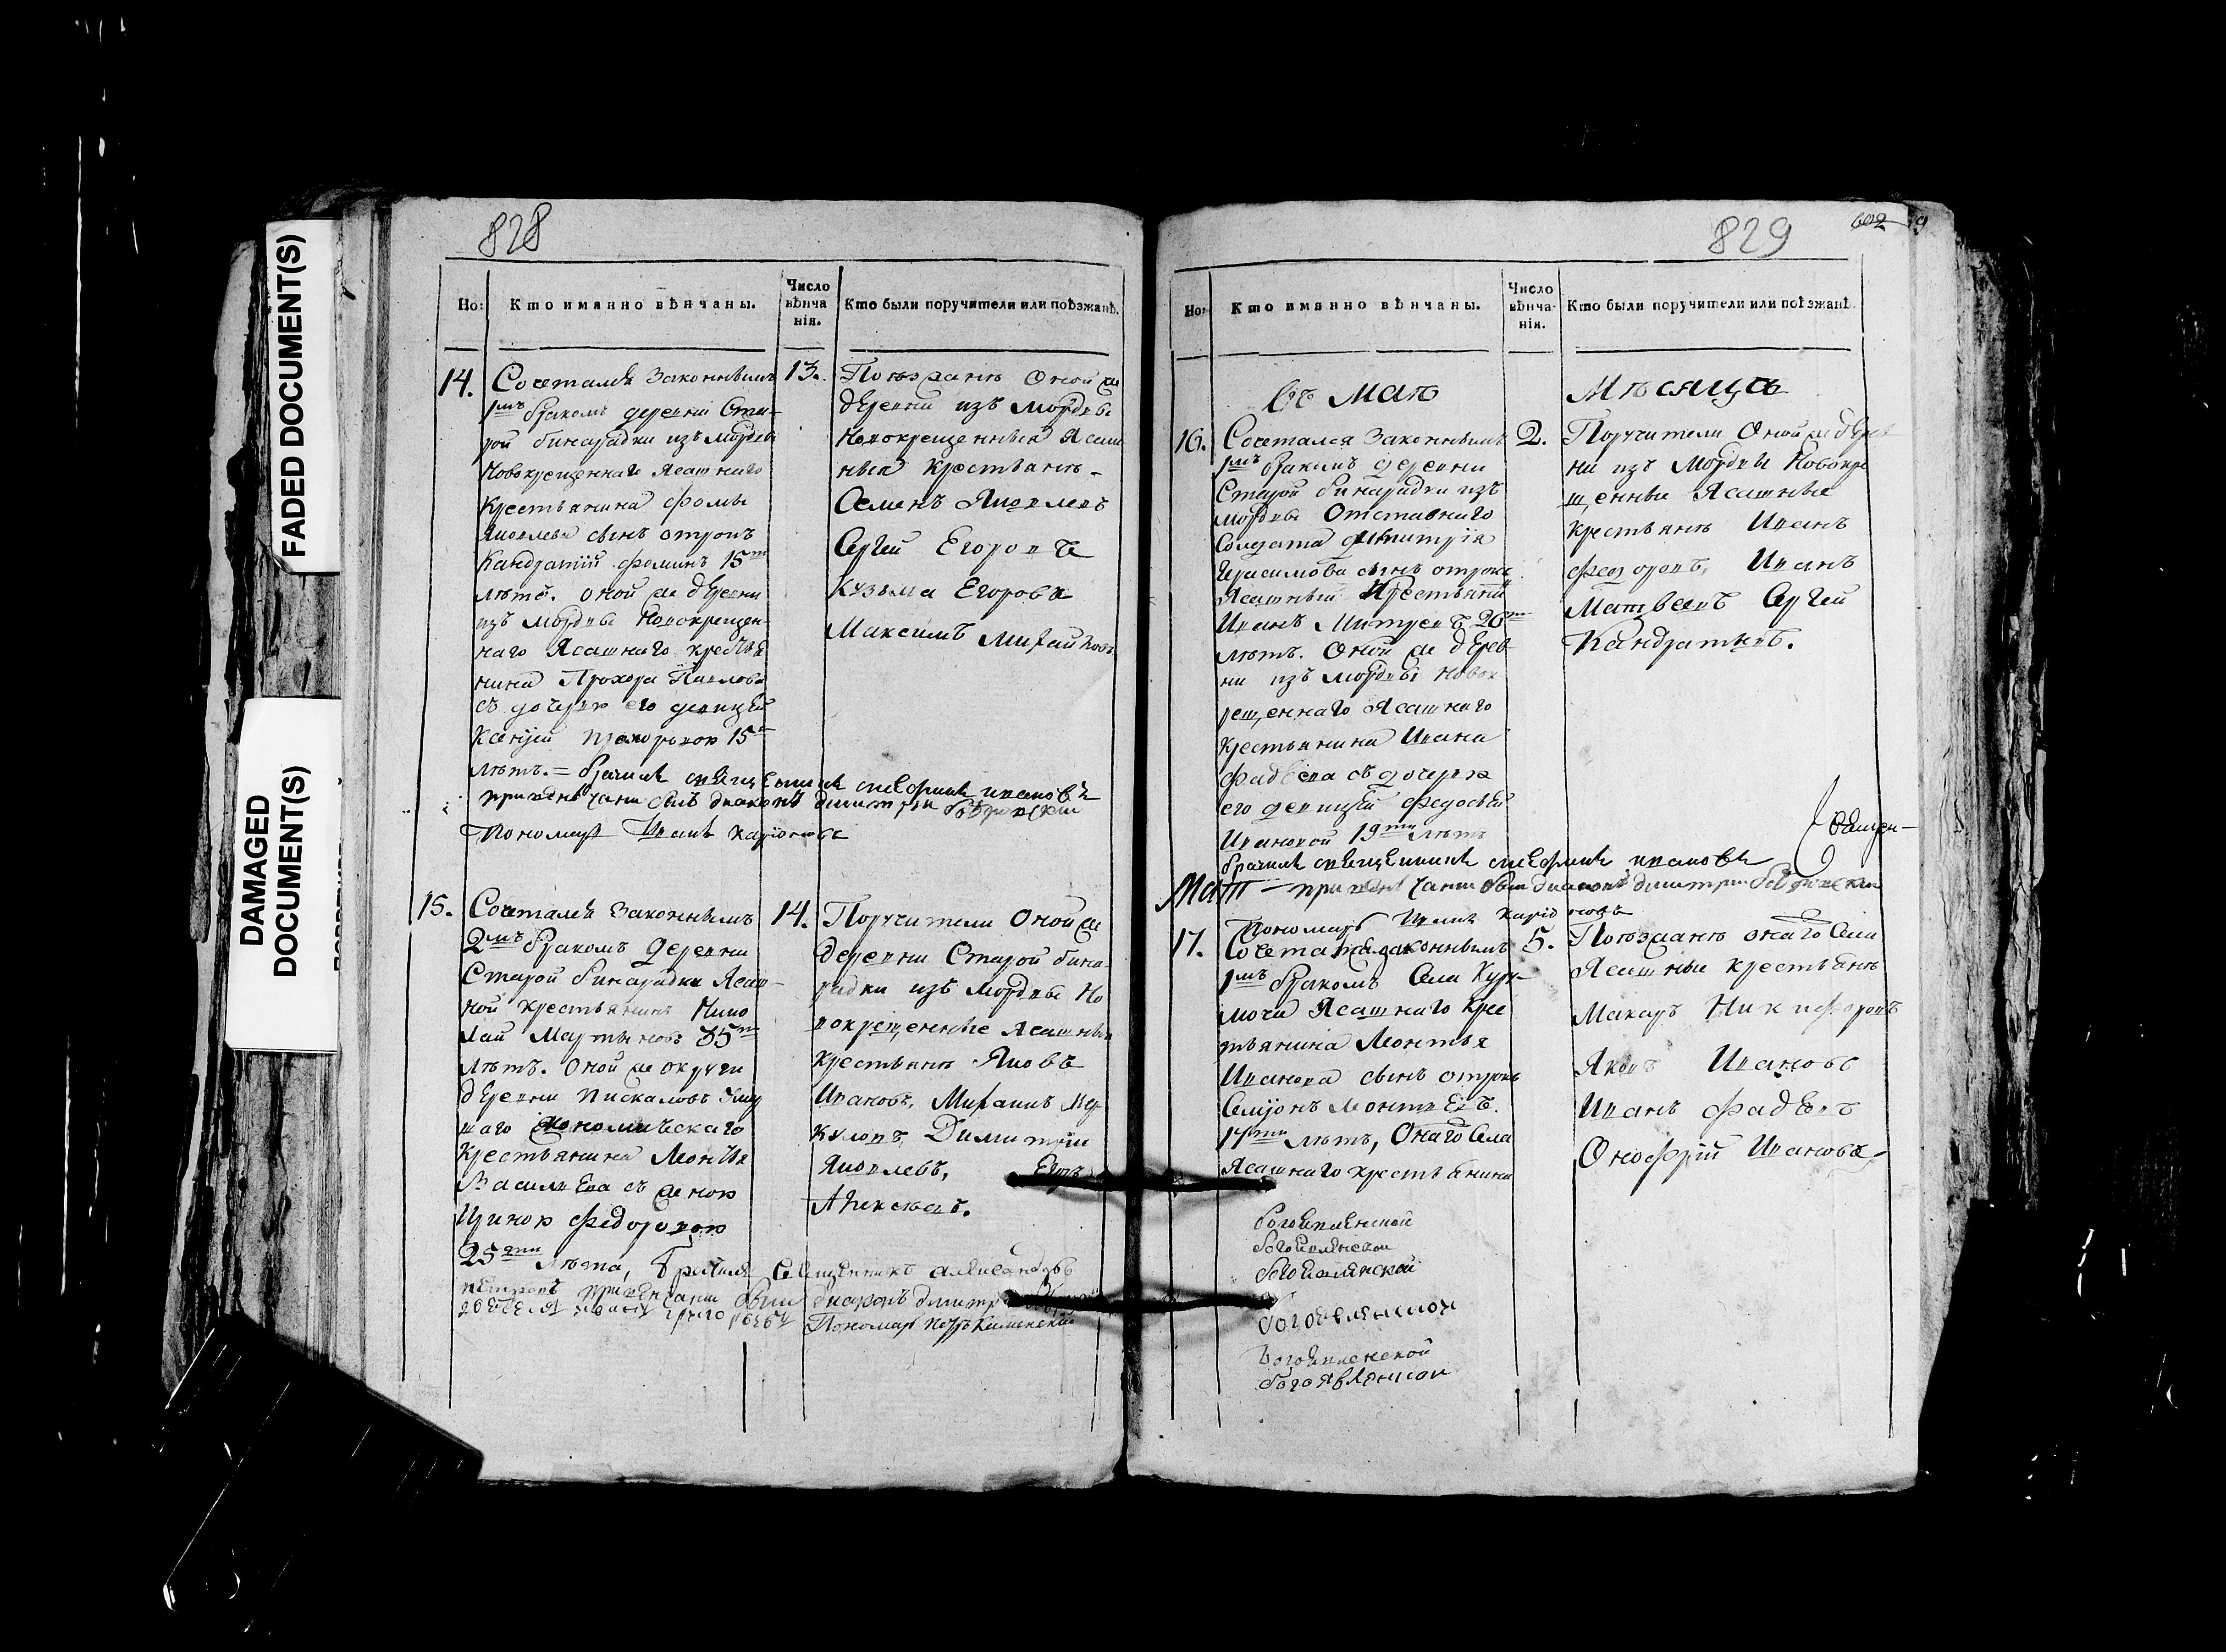 FADED DOCUMENT(S)
DAMAGED
DOCUMENT(S)
828
Но:
Кто имянно вѣнчаны.
Число
вѣнча
нія.
Кто были поручители или поѣзжанѣ.
14.
Сочетался Законнымъ
1мъ бракомъ деревни Ста-
рой бинарадки изъ мордвы
Новокрещеннаго Ясашнаго
Крестьянина Фомы
Яковлева сынъ отрокъ
Кандратій Фоминъ 15ти
лѣтъ. оной же dеревни
изъ мордвы Новокрещен-
наго Ясашнаго кресътья
нина Прохора Павлова
съ дочерью его девицей
Ксеніей Прохоровою 15ти
лѣтъ. = бранилъ священникъ Ивановъ
при вѣнчани былъ диаконъ димитрій
Пономарь Иванъ
13.
Поѣзжанѣ Оной же
dеревни изъ мордвы
Новокрещенныя Ясаш
ныя крестьянѣ -
Семенъ Яковлевъ
Сергей Егоровъ
Кузьма Егоровъ
Максимъ Михайловъ
15.
Сочетался Законнымъ
2мъ бракомъ деревни
Старой бинарадки Ясаш-
ной крестьянинъ Нико
лай Мартыновъ 35ти
лѣтъ. Оной же округи
dеревни Пискаловъ
крестьянина Леонтья
Василиева съ женою
Ириною Федоровою
25ти лѣта, Священникъ Александръ
Петровъ при венчани были диаконъ димитри
Пономарь Петръ Каменский
14.
Поручители Оной же
деревни Старой бина-
радки изъ мордвы Но
вокрещенные Ясашныя
крестьянѣ Яковъ
Ивановъ, Михаилъ Мер-
куловъ, Димитрій
Яковлевъ, Егоръ
Алексѣевъ.
829
602
Но:
Кто имянно вѣнчаны.
Число
вѣнча-
нія.
Кто были поручители или поѣзжанѣ.
Въ маѣ
Мѣсяцѣ
16.
Сочетался Законнымъ
1мъ бракомъ деревни
Старой бинарадки изъ
мордвы Отставнаго
Солдата Димитрія
Герасимова сынъ отрокъ
Ясашный Крестьянинъ
Иванъ Митревъ 20ти
лѣтъ. Оной же dерев-
ни изъ мордвы новок
рещеннаго Ясашнаго
крестьянина Ивана
Фадѣева съ дочерью
его девицей Федосьей
Ивановой 19ти лѣтъ
бранилъ священникъ Ивановъ
при вѣнчани были диаконъ димитрий
Пономарь Иванъ
2.
Поручители Оной же dерев
ни изъ Мордвы Новокре
щенные Ясашные
крестьянѣ Иванъ
Федоровъ, Иванъ
Матвеевъ Сергей
Кандратьевъ.
17.
Сочетался законнымъ
1мъ бракомъ Села Кур-
мочи Ясашнаго Крес
тьянина Леонтья
Иванова сынъ отрокъ
Семіонъ Леонтьевъ.
17ти лѣтъ, Онаго Села
Ясашнаго крестьянина
5.
Поѣзжанѣ онаго Села
Ясашные крестьянѣ
Макаръ Никифоровъ
Яковъ Ивановъ
Иванъ Фадѣевъ
Онофрій Ивановъ-
богоявленской
богоявленской
богоявленской
богоявленской
богоявленской
богоявленской